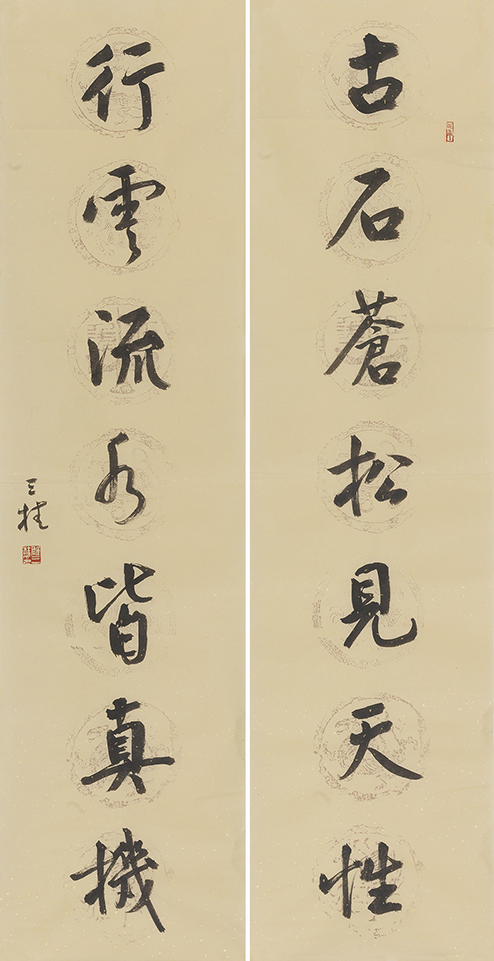 古石蒼松見天性
行雲流水皆真機